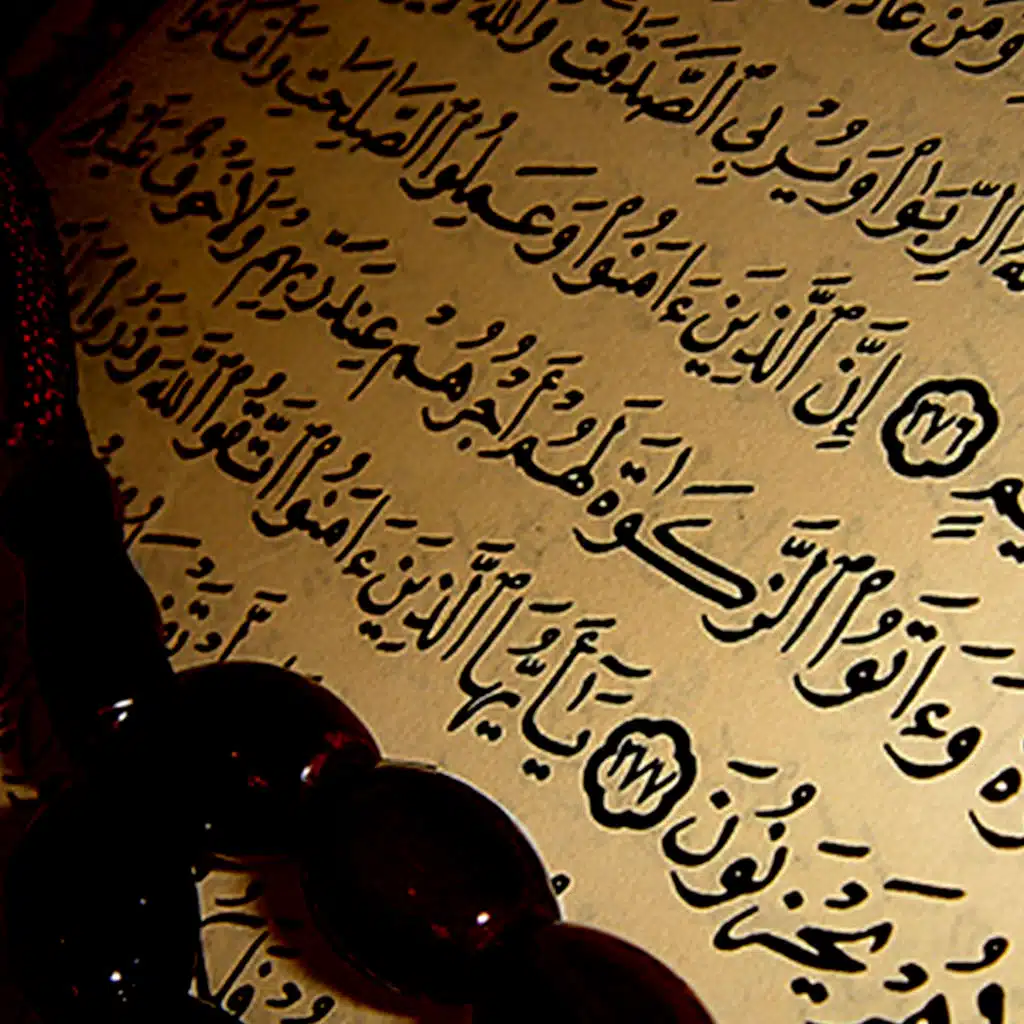 وَمَنْ عَادَ
ٱلرِّبَوٰا۟ وَيُرْبِى ٱلصَّدَقَٰتِ وَٱللَّهُ
ـيمٍ ٢٧٦ إِنَّ ٱلَّذِينَ ءَامَنُوا۟ وَعَمِلُوا۟ ٱلصَّٰلِحَٰتِ وَأَقَامُوا۟
وَءَاتَوُا۟ ٱلزَّكَوٰةَ لَهُمْ أَجْرُهُمْ عِندَ رَبِّهِمْ وَلَا خَوْفٌ عَلَيْهِمْ
يَحْزَنُونَ ٢٧٧ يَٰٓأَيُّهَا ٱلَّذِينَ ءَامَنُوا۟ ٱتَّقُوا۟ ٱللَّهَ وَذَرُوا۟